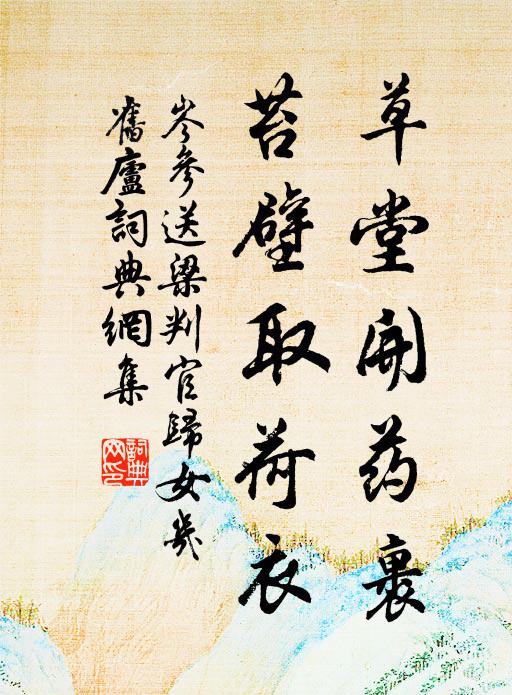 草堂開药裹
苔壁取荷衣
岑參送梁判官歸女几
舊廬詞典網集
詞典網印